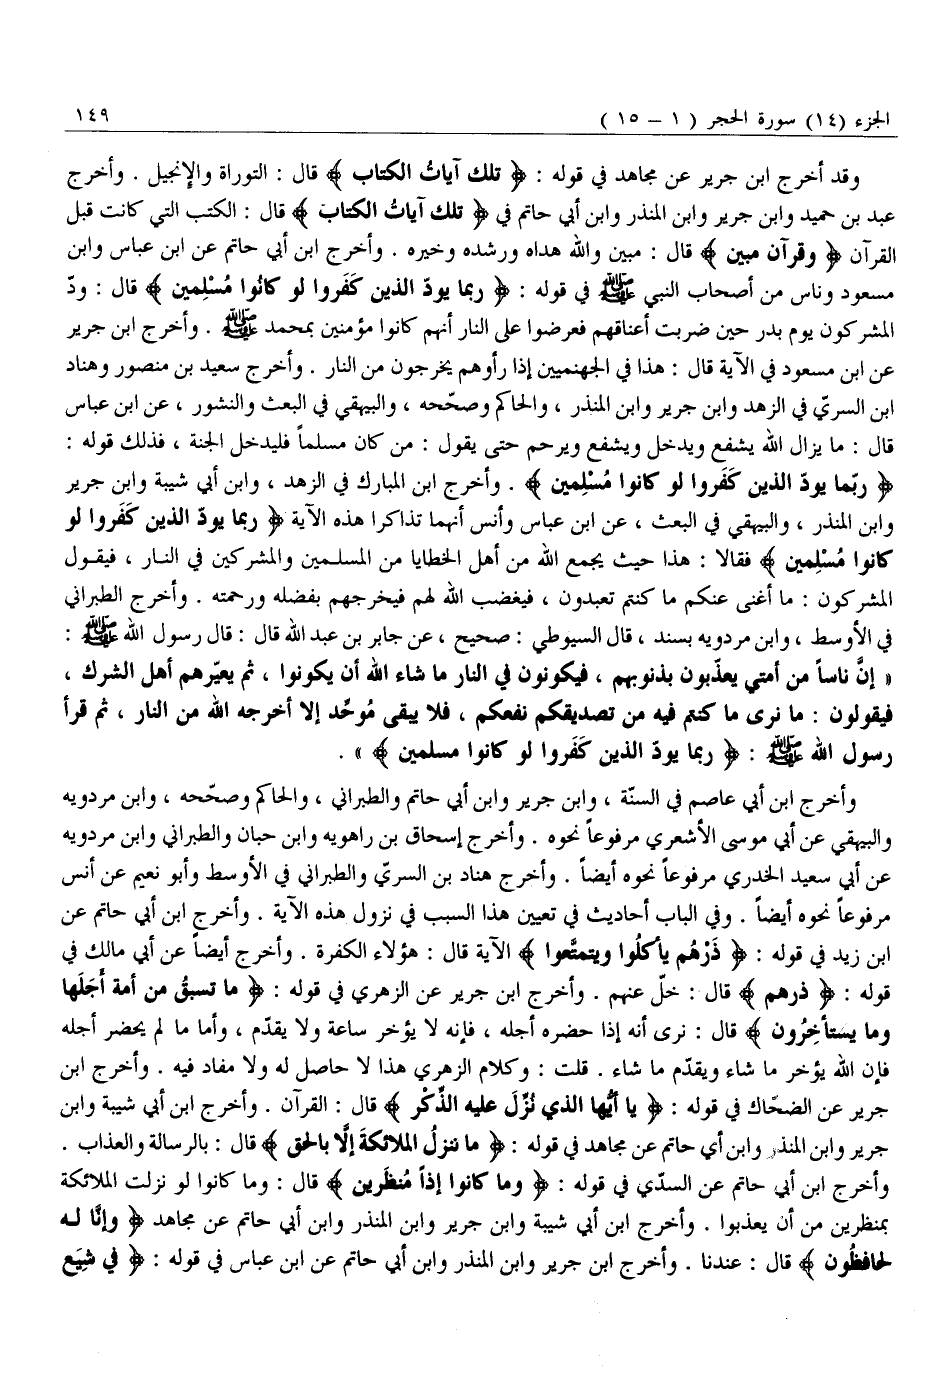 الجزء (١٤) سورة الحجر ( ١ – ١٥ ) ١٤٩
وقد أخرج ابن جرير عن مجاهد في قوله : ﴿ تلك آياتُ الكتاب ﴾ قال : التوراة والإنجيل . وأخرج
عبد بن حميد وابن جرير وابن المنذر وابن أبي حاتم في ﴿ تلك آياتُ الكتابَ ﴾ قال : الكتب التي كانت قبل
القرآن ﴿ وقرآن مبين ﴾ قال : مبين والله هداه ورشده وخيره . وأخرج ابن أبي حاتم عن ابن عباس وابن
مسعود وناس من أصحاب النبي ﷺ في قوله : ﴿ ربما يودّ الذين كَفَروا لو كانُوا مُسْلِمين ﴾ قال : ودّ
المشركون يوم بدر حين ضربت أعناقهم فعرضوا على النار أنهم كانوا مؤمنين بمحمد ﷺ . وأخرج ابن جرير
عن ابن مسعود في الآية قال : هذا في الجهنميين إذا رأوهم يخرجون من النار . وأخرج سعيد بن منصور وهناد
ابن السريّ في الزهد وابن جرير وابن المنذر ، والحاكم وصحّحه ، والبيهقي في البعث والنشور ، عن ابن عباس
قال : ما يزال الله يشفع ويدخل ويشفع ويرحم حتى يقول : من كان مسلماً فليدخل الجنة ، فذلك قوله :
﴿ ربّما يودّ الذين كَفَروا لو كانوا مُسْلِمين ﴾ . وأخرج ابن المبارك في الزهد ، وابن أبي شيبة وابن جرير
وابن المنذر ، والبيهقي في البعث ، عن ابن عباس وأنس أنهما تذاكرا هذه الآية ﴿ ربما يودّ الذين كَفَروا لو
كانوا مُسْلِمين ﴾ فقالا : هذا حيث يجمع الله من أهل الخطايا من المسلمين والمشركين في النار ، فيقول
المشركون : ما أغنى عنكم ما كنتم تعبدون ، فيغضب الله لهم فيخرجهم بفضله ورحمته . وأخرج الطبراني
في الأوسط ، وابن مردويه بسند ، قال السيوطي : صحيح ، عن جابر بن عبد الله قال : قال رسول الله ﷺ :
« إنَّ ناساً من أمتي يعذّبون بذنوبهم ، فيكونون في النار ما شاء الله أن يكونوا ، ثم يعيّرهم أهل الشرك ،
فيقولون : ما نرى ما كنتم فيه من تصديقكم نفعكم ، فلا يبقى مُوحِّد إلا أخرجه الله من النار ، ثم قرأ
رسول الله ﷺ : ﴿ ربما يودّ الذين كَفَروا لو كانوا مسلمين ﴾ » .
وأخرج ابن أبي عاصم في السنّة ، وابن جرير وابن أبي حاتم والطبراني ، والحاكم وصحّحه ، وابن مردويه
والبيهقي عن أبي موسى الأشعري مرفوعاً نحوه . وأخرج إسحاق بن راهويه وابن حبان والطبراني وابن مردويه
عن أبي سعيد الخدري مرفوعاً نحوه أيضاً . وأخرج هناد بن السريّ والطبراني في الأوسط وأبو نعيم عن أنس
مرفوعاً نحوه أيضاً . وفي الباب أحاديث في تعيين هذا السبب في نزول هذه الآية . وأخرج ابن أبي حاتم عن
ابن زيد في قوله : ﴿ ذَرْهُم يأكلُوا ويتمتَّعوا ﴾ الآية قال : هؤلاء الكفرة . وأخرج أيضاً عن أبي مالك في
قوله : ﴿ ذرهم ﴾ قال : خلّ عنهم . وأخرج ابن جرير عن الزهري في قوله : ﴿ ما تسبقُ من أمة أَجَلَها
وما يستأخِرُون ﴾ قال : نرى أنه إذا حضره أجله ، فإنه لا يؤخر ساعة ولا يقدّم ، وأما ما لم يحضر أجله
فإن الله يؤخر ما شاء ويقدّم ما شاء . قلت : وكلام الزهري هذا لا حاصل له ولا مفاد فيه . وأخرج ابن
جرير عن الضحّاك في قوله : ﴿ يا أيُّها الذي نُزِّلَ عليه الذِّكْر ﴾ قال : القرآن . وأخرج ابن أبي شيبة وابن
جرير وابن المنذر وابن أي حاتم عن مجاهد في قوله : ﴿ ما ننزلُ الملائكةَ إلَّا بالحق ﴾ قال : بالرسالة والعذاب .
وأخرج ابن أبي حاتم عن السدّي في قوله : ﴿ وما كانوا إذاً مُنظَرين ﴾ قال : وما كانوا لو نزلت الملائكة
بمنظرين من أن يعذبوا . وأخرج ابن أبي شيبة وابن جرير وابن المنذر وابن أبي حاتم عن مجاهد ﴿ وإنَّا لـه
لحافظُون ﴾ قال : عندنا . وأخرج ابن جرير وابن المنذر وابن أبي حاتم عن ابن عباس في قوله : ﴿ في شِيَع